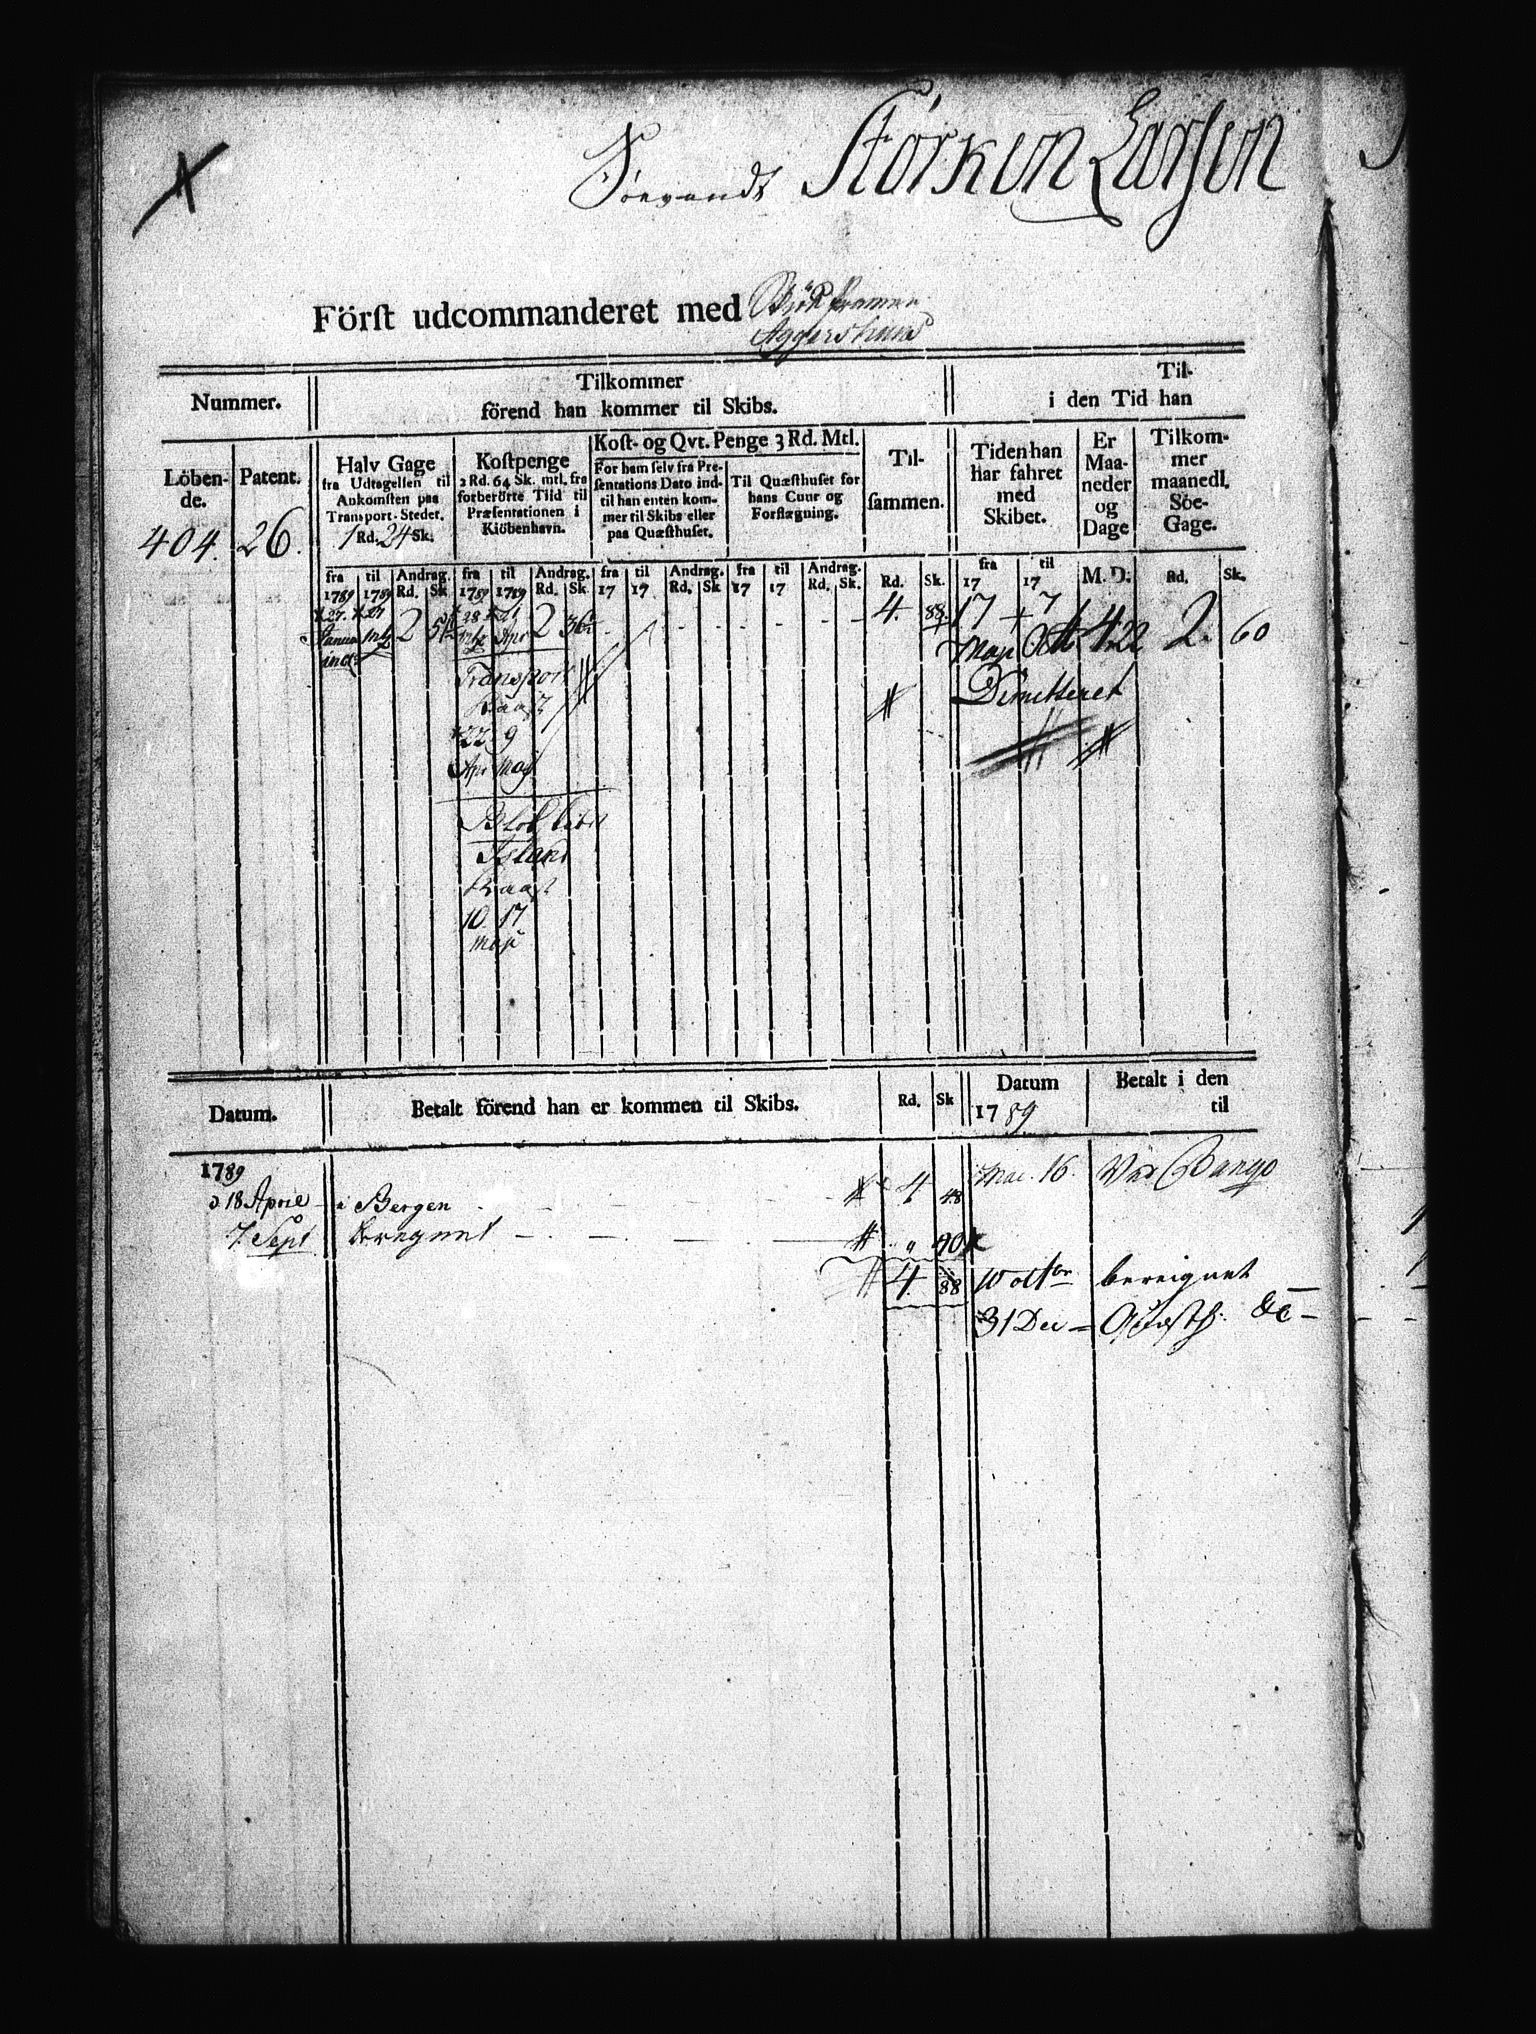 Söevandt Störken Larsen
Först udcommanderet med
Aggershuus
Til-
Tilkommer
Nummer.
förend han kommer til Skibs.
i den Tid han
Löben-
de.
404.
Patent.
26.
Halv Gage
fra Udtagelsen til
Ankomsten paa
Transport-Stedet.
1 Rd. 24 Sk.
Kostpenge
2 Rd. 64 Sk. mtl. fra
forberörte Tiid til
Præsentationen i
Kiöbenhavn.
Kost- og Qvt. Penge 3 Rd. Mtl.
For ham selv fra Pre-
sentations Dato ind-
til han enten kom-
mer til Skibs eller
paa Quæsthuset.
Til Quæsthuset for
hans Cuur og
Forflægning.
Til-
sammen.
Tiden han
har fahret
med
Skibet.
Er
Maa-
neder
og
Dage
Tilkom-
mer
maanedl.
Söe-
Gage.
fra til Andrag. fra til Andrag. fra til Andrag. fra til Andrag. fra til
1789 1789 Rd. Sk 1789 1789 Rd. Sk. 17 17 Rd. Sk 17 17 Rd. Sk. Rd. Sk. 17 17 M. D. Rd. Sk.
27. 27 2 28 21 2 4. 88. 17 7 4 22 2. 60
Apr Maji Oct
Transport
Demitteret
22 9
Apr Maj
Island
10 17
Maji
Datum.
Betalt förend han er kommen til Skibs.
Rd. Sk
Datum
1789
Betalt i den
til
1789
d 18 April i Bergen 4 48
16.
7. Sept beregnet " 40
4 88
10 octbr bereignet
31 Dec Qvæsth. &c